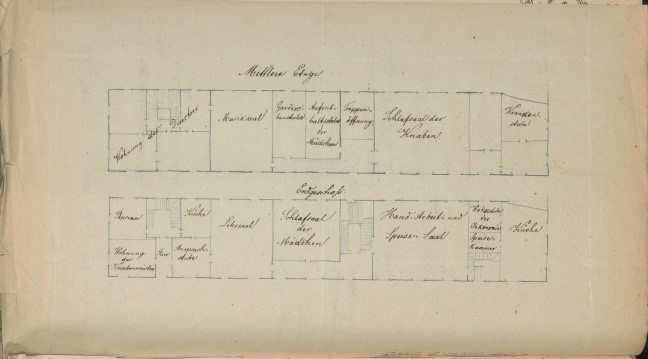 Mittlere Etage
Wohnung des Directors
Musiksaal
Garderobe-
Aufent-
haltsstube
der
Mädchen
Treppen-
öffnung
Schlafsaal der
Knaben
Kranken
stube
Erdgeschoß
Bureau
Küche
Wohnung
der
Flur
Lehrsaal
Schlafsaal
der
Mädchen
Hand-Arbeit- und
Speise-Saal
der
Oekonomie
Speise-
kammer
Küche